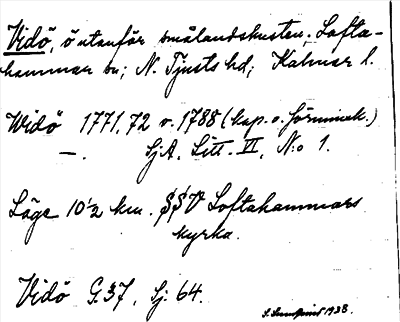 Vidö, ö utanför smålandskusten, Lofta-
hammar sn; N. Tjusts hd; Kalmar l.
Widö 1771, 72 o. 1788 (kap. o. förminsk.)
—. SjA, Litt. VI, N:o 1.
Läge 10 1/2 km. SSV Loftahammars
kyrka.
Vidö G. 37, Sj. 64.
1938.